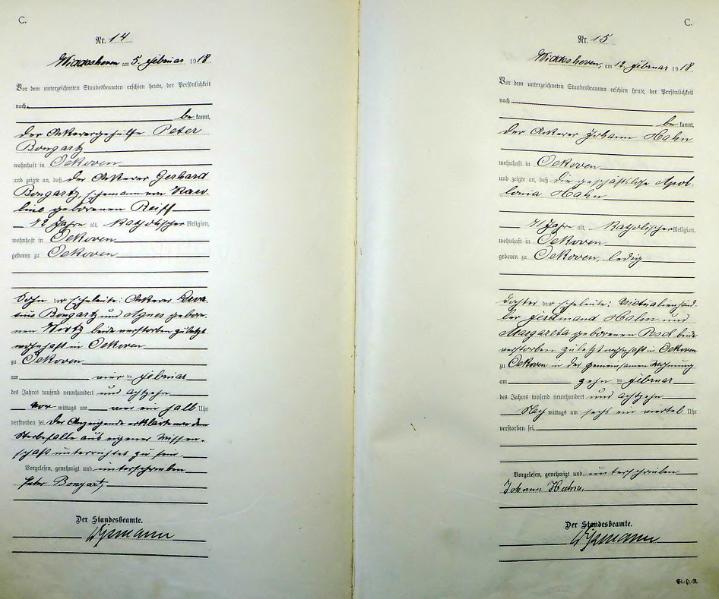 C.
Nr. 14
am 5. Februar 1918.
Vor dem unterzeichneten Standesbeamten erschien heute, der Persönlichkeit
nach
be kannt,
der Ackerergehülfe Peter
Bongartz
wohnhaft in Oekoven
und zeigte an, daß der Ackerer Gerhard
Bongartz, Ehemann von Karo-
line geborenen Reiff
72 Jahre alt, Katholischer Religion,
wohnhaft in Oekoven
geboren zu Oekoven
Sohn der Eheleute: Ackerer
Bongartz und Agnes gebore-
nen beide verstorben zuletzt
wohnhaft in Oekoven
zu Oekoven
am vier ten Februar
des Jahres tausend neunhundert und achtzehn
Vor mittags um ein halb Uhr
verstorben sei. Der Anzeigende erklärte von dem
Sterbefalle aus eigener Wissen-
schaft unterrichtet zu sein
Vorgelesen, genehmigt und unterschrieben
Peter Bongartz
Der Standesbeamte.
C.
Nr. 15
am 12. Februar 1918.
Vor dem unterzeichneten Standesbeamten erschien heute, der Persönlichkeit
nach
be kannt,
der Ackerer Johann Hahn
wohnhaft in Oekoven
und zeigte an, daß die geschäftslose Apol-
lonia Hahn
71 Jahre alt, Katholischer Religion,
wohnhaft in Oekoven
geboren zu Oekoven, ledig
Tochter der Eheleute:
Ferdinand Hahn und
Margareta geborenen beide
verstorben zuletzt wohnhaft in Oekoven
zu Oekoven in der gemeinsamen Wohnung
am zehn ten Februar
des Jahres tausend neunhundert und achtzehn
Nach mittags um sechs ein viertel Uhr
verstorben sei.
Vorgelesen, genehmigt und unterschrieben
Johann Hahn.
Der Standesbeamte.